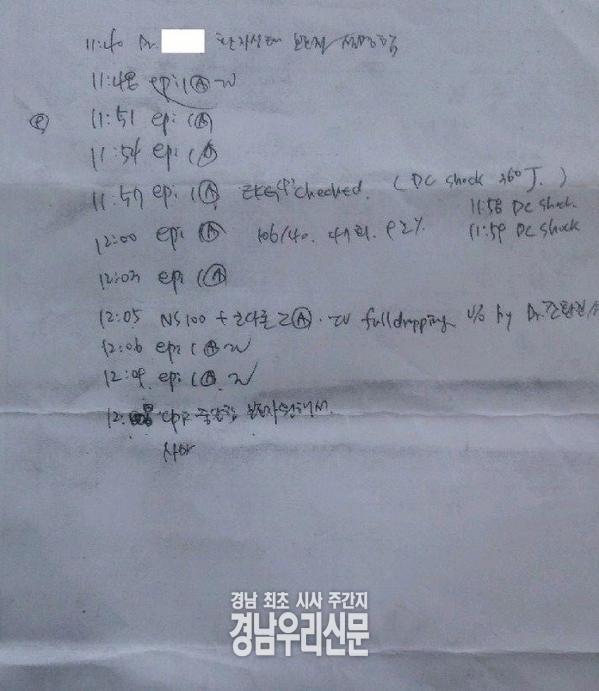 11:40 Dr. 환자상태 보호자 설명함
11:48 epi 1Ⓐ IV
Ⓟ 11:51 epi 1Ⓐ
11:54 epi 1Ⓐ
11:57 epi 1Ⓐ EKG checked. (DC shock 360J.)
11:58 DC shock.
12:00 epi 1Ⓐ 106/40. 47회. 92%
11:59 DC shock
12:03 epi 1Ⓐ
12:05 NS100 + 2Ⓐ. IV full dropping v/o by Dr.
12:06 epi 1Ⓐ IV
12:09 epi 1Ⓐ IV
12: 중단함 보호자 원해서.
사망
경남 최초 시사 주간지
경남우리신문